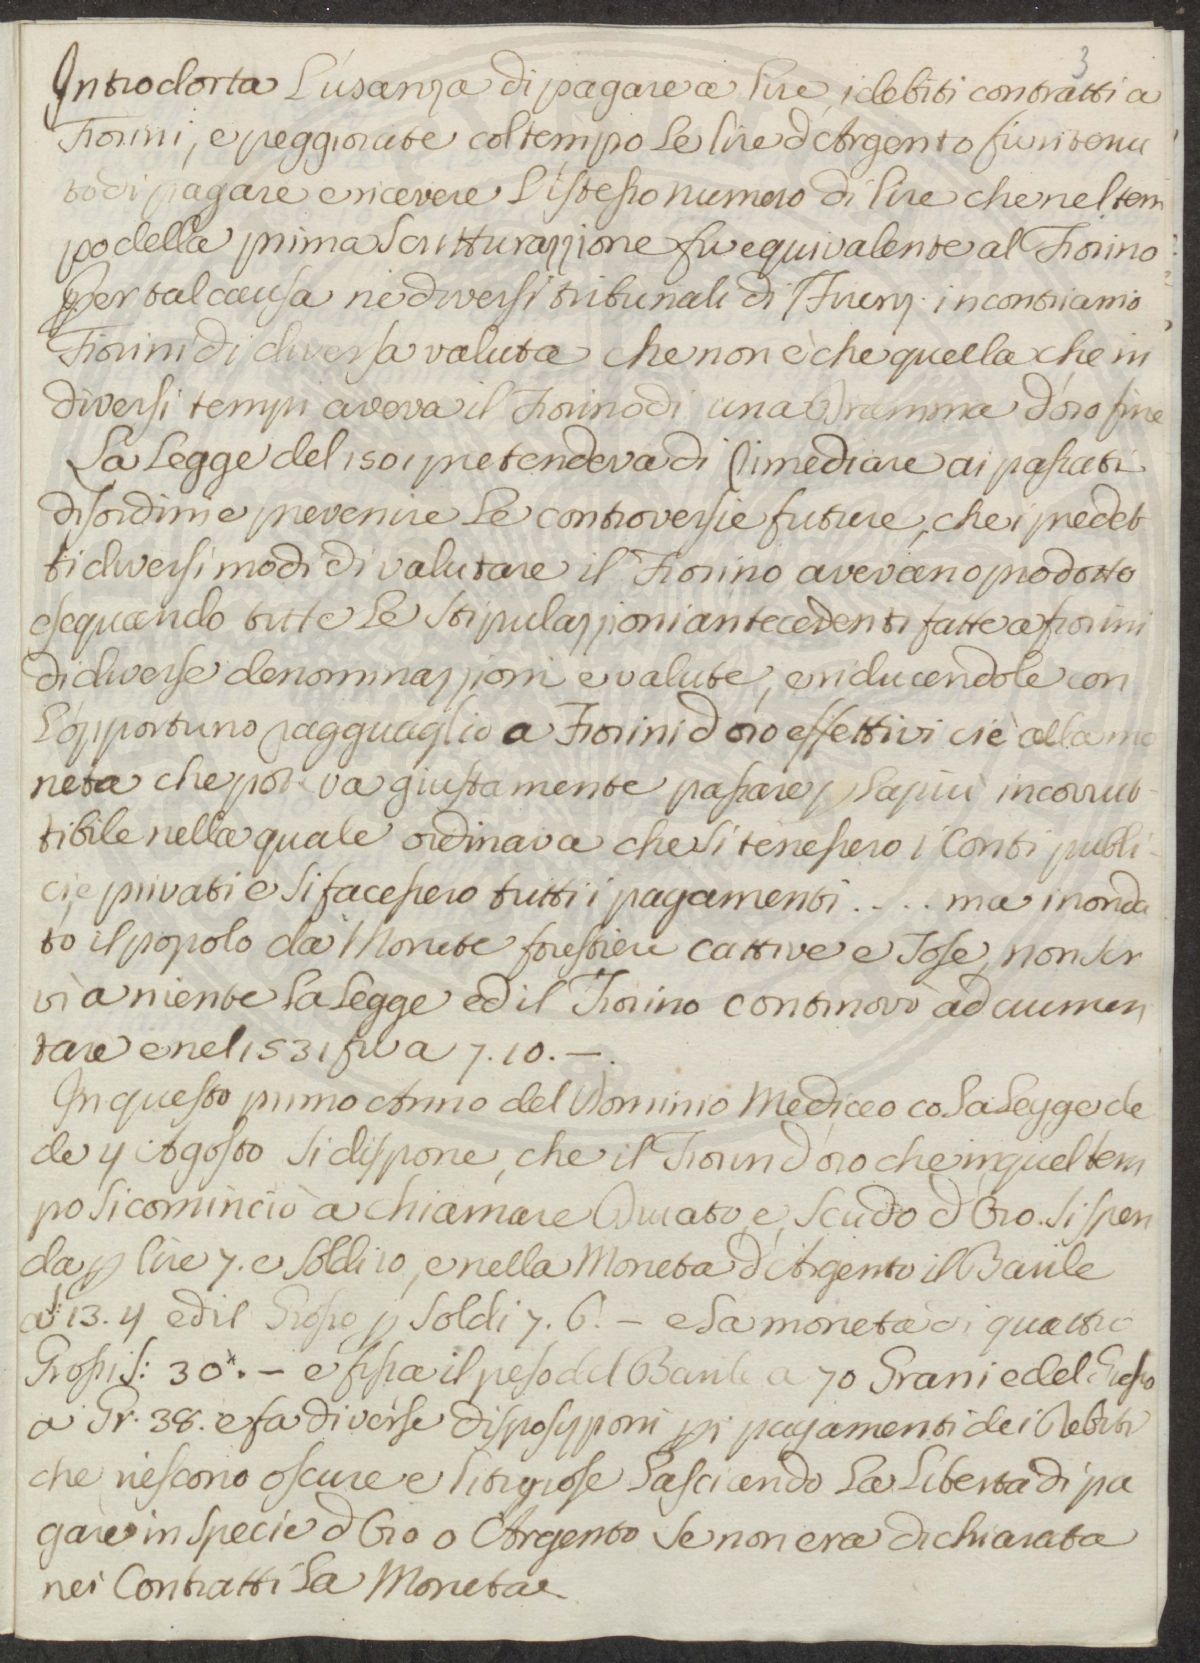 3
Introdotta l'usanza di pagare a lire i debiti contratti a
Fiorini, e peggiorate col tempo le lire d'Argento fu ritenu
to di pagare e ricevere l'istesso numero di lire che nel tem
po della prima scritturazzione fu equivalente al Fiorino
Per tal causa ne diversi tribunali di Firenz. incontriamo
Fiorini di diversa valuta che non è che quella che in
diversi tempi aveva il Fiorino di una Dramma d'oro fine
La Legge del 1501 pretendeva di rimediare ai passati
disordini e prevenire le controversie future, che i predet
ti diversi modi di valutare il Fiorino avevano prodotto
esequando tutte le stipulazzioni antecedenti fatte a fiorini
di diverse denominazzioni e valute, e riducendole con
l'opportuno ragguaglio a Fiorini d'oro effettivi cie alla mo
neta che poteva giustamente passare p la più incorrut-
tibile nella quale ordinava che si tenessero i Conti publi-
ci e privati e si facessero tutti i pagamenti .... ma inonda
to il popolo da Monete forestiere cattive e Tose, non ser
vì a niente la Legge ed il Fiorino continovò ad aumen
tare e nel 1531 fu a 7.10.—.
In questo primo Anno del Dominio Mediceo co la Legge de
de 4 Agosto si dispone, che il Fiorin d'oro che in quel tem
po si cominciò à chiamare Ducato, e, Scudo d'Oro. si spen
da p lire 7. e soldi 10, e nella Moneta d'Argento il Barile
a s: 13.4 ed il Grosso p soldi 7.6.— e la moneta di quattro
Grossi s: 30*.— e fissa il peso del Barile a 70 Grani e del Grosso
a Gr. 38. e fa diverse disposizzioni pi pagamenti dei Debiti
che riescono oscure e litigiose lasciando la libertà di pa
gare in specie d'Oro o Argento se non era dichiarata
nei Contratti la Moneta